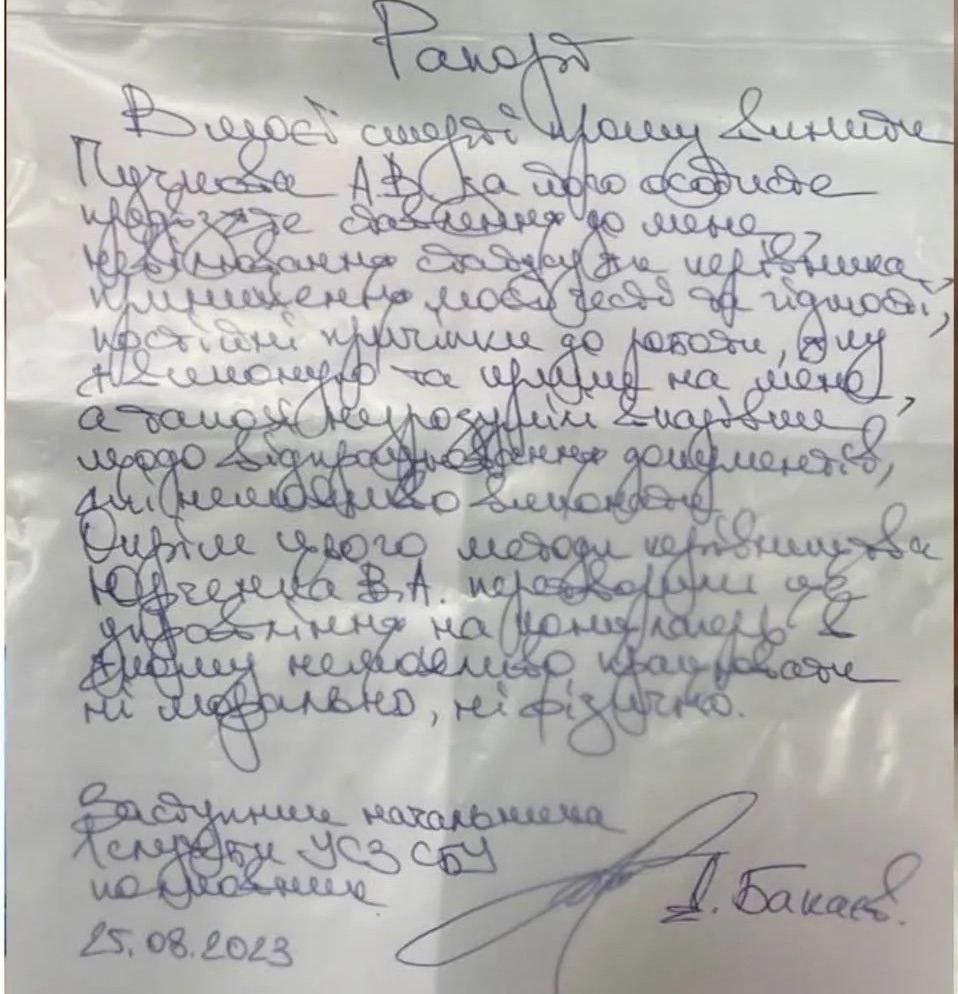 Рапорт
В моєї смерті прошу винити
А.В. за його особисте
предвзяте ставлення до мене,
не як керівника,
приниження моєї честі та гідності,
постійні причіпки до роботи, яку
я виконую та крики на мене,
а також незрозумілі вказівки
щодо відпрацювання документів,
які неможливо виконати.
Окрім цього методи керівництва
Юрченка В.А. перетворили це
управління на концлагерь в
якому неможливо працювати
ні морально, ні фізично.
Заступник начальника
служби УСЗ СБУ
полковник
Д. Бакаєв.
25.08.2023